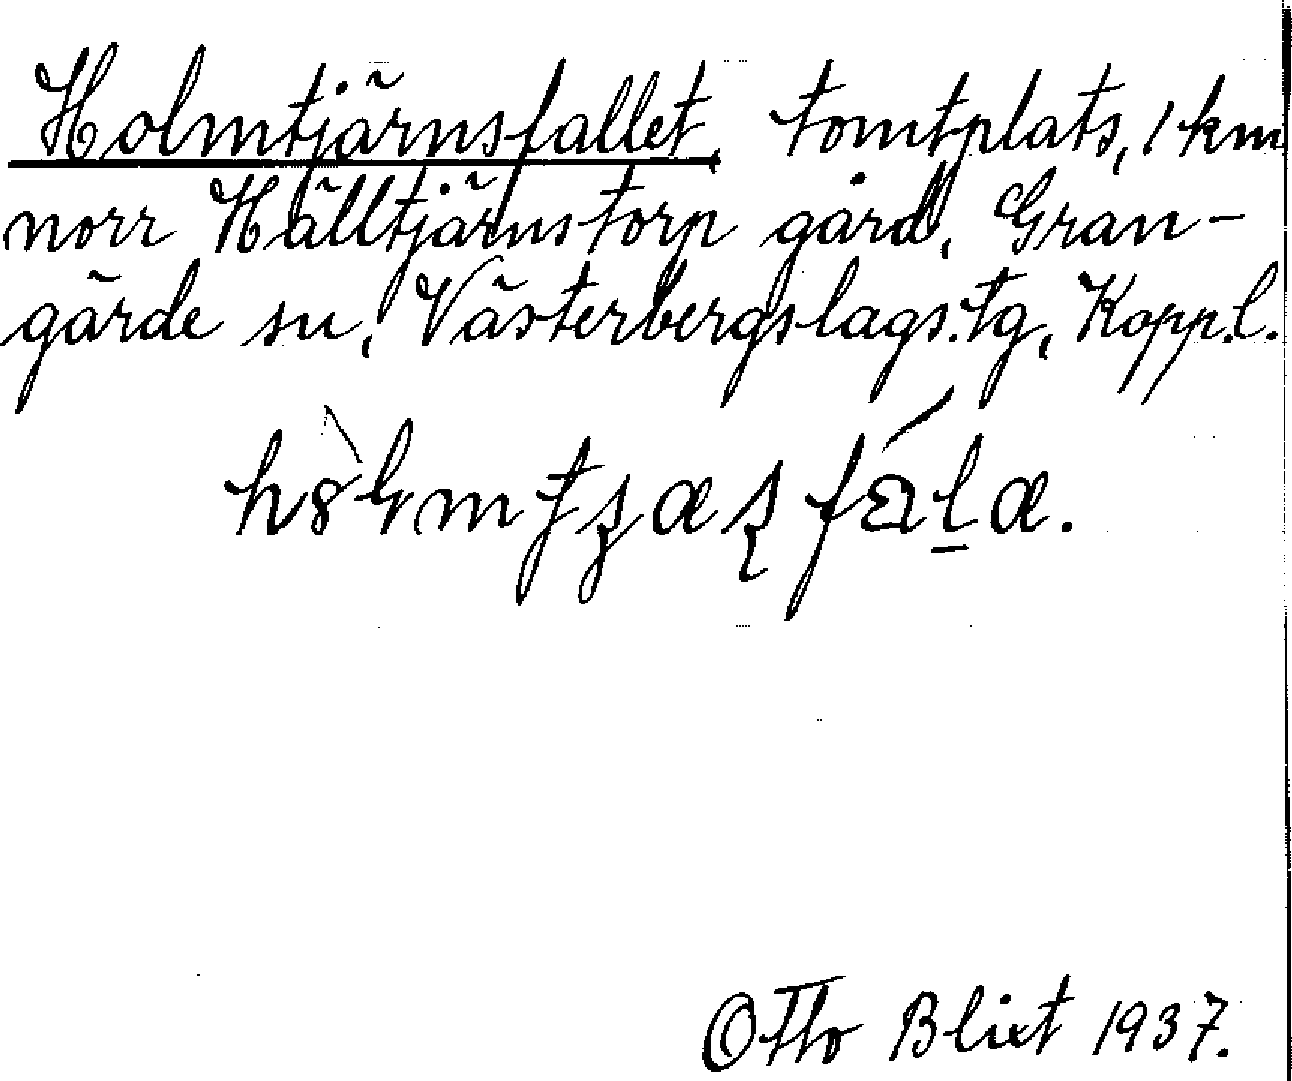 Holmtjärnsfallet, tomtplats, 1 km
norr Hälltjärnstorp gård, Gran-
gärde sn, Västerbergslags.tg, Kopp.l.
Otto Blixt 1937.